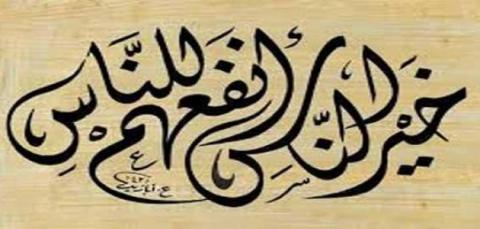 خَيْرُ النَّاسِ أَنفَعُهُمْ لِلنَّاسِ